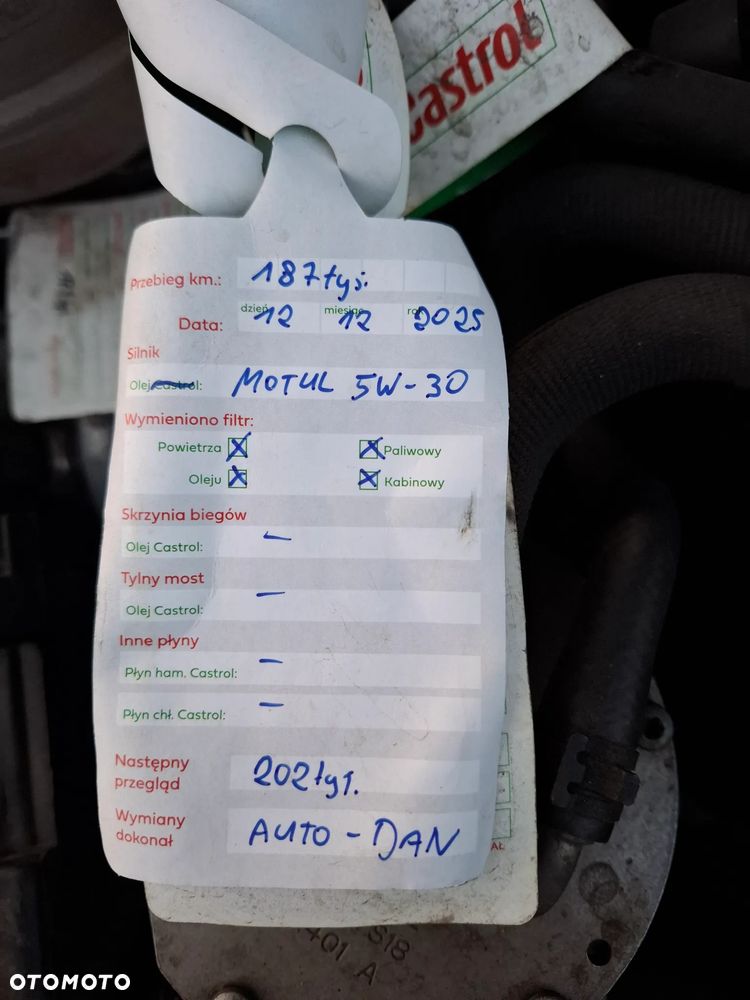 Castrol
Przebieg km.: 187 tyś.
dzień miesiąc rok
Data: 12 12 2025
Silnik
Olej Castrol: MOTUL 5W-30
Wymieniono filtr:
Powietrza Paliwowy
Oleju Kabinowy
Skrzynia biegów
Olej Castrol: –
Tylny most
Olej Castrol: –
Inne płyny
Płyn ham. Castrol: –
Płyn chł. Castrol: –
Następny
przegląd 202 tyś.
Wymiany
dokonał AUTO - DAN
S18
401 A
OTOMOTO